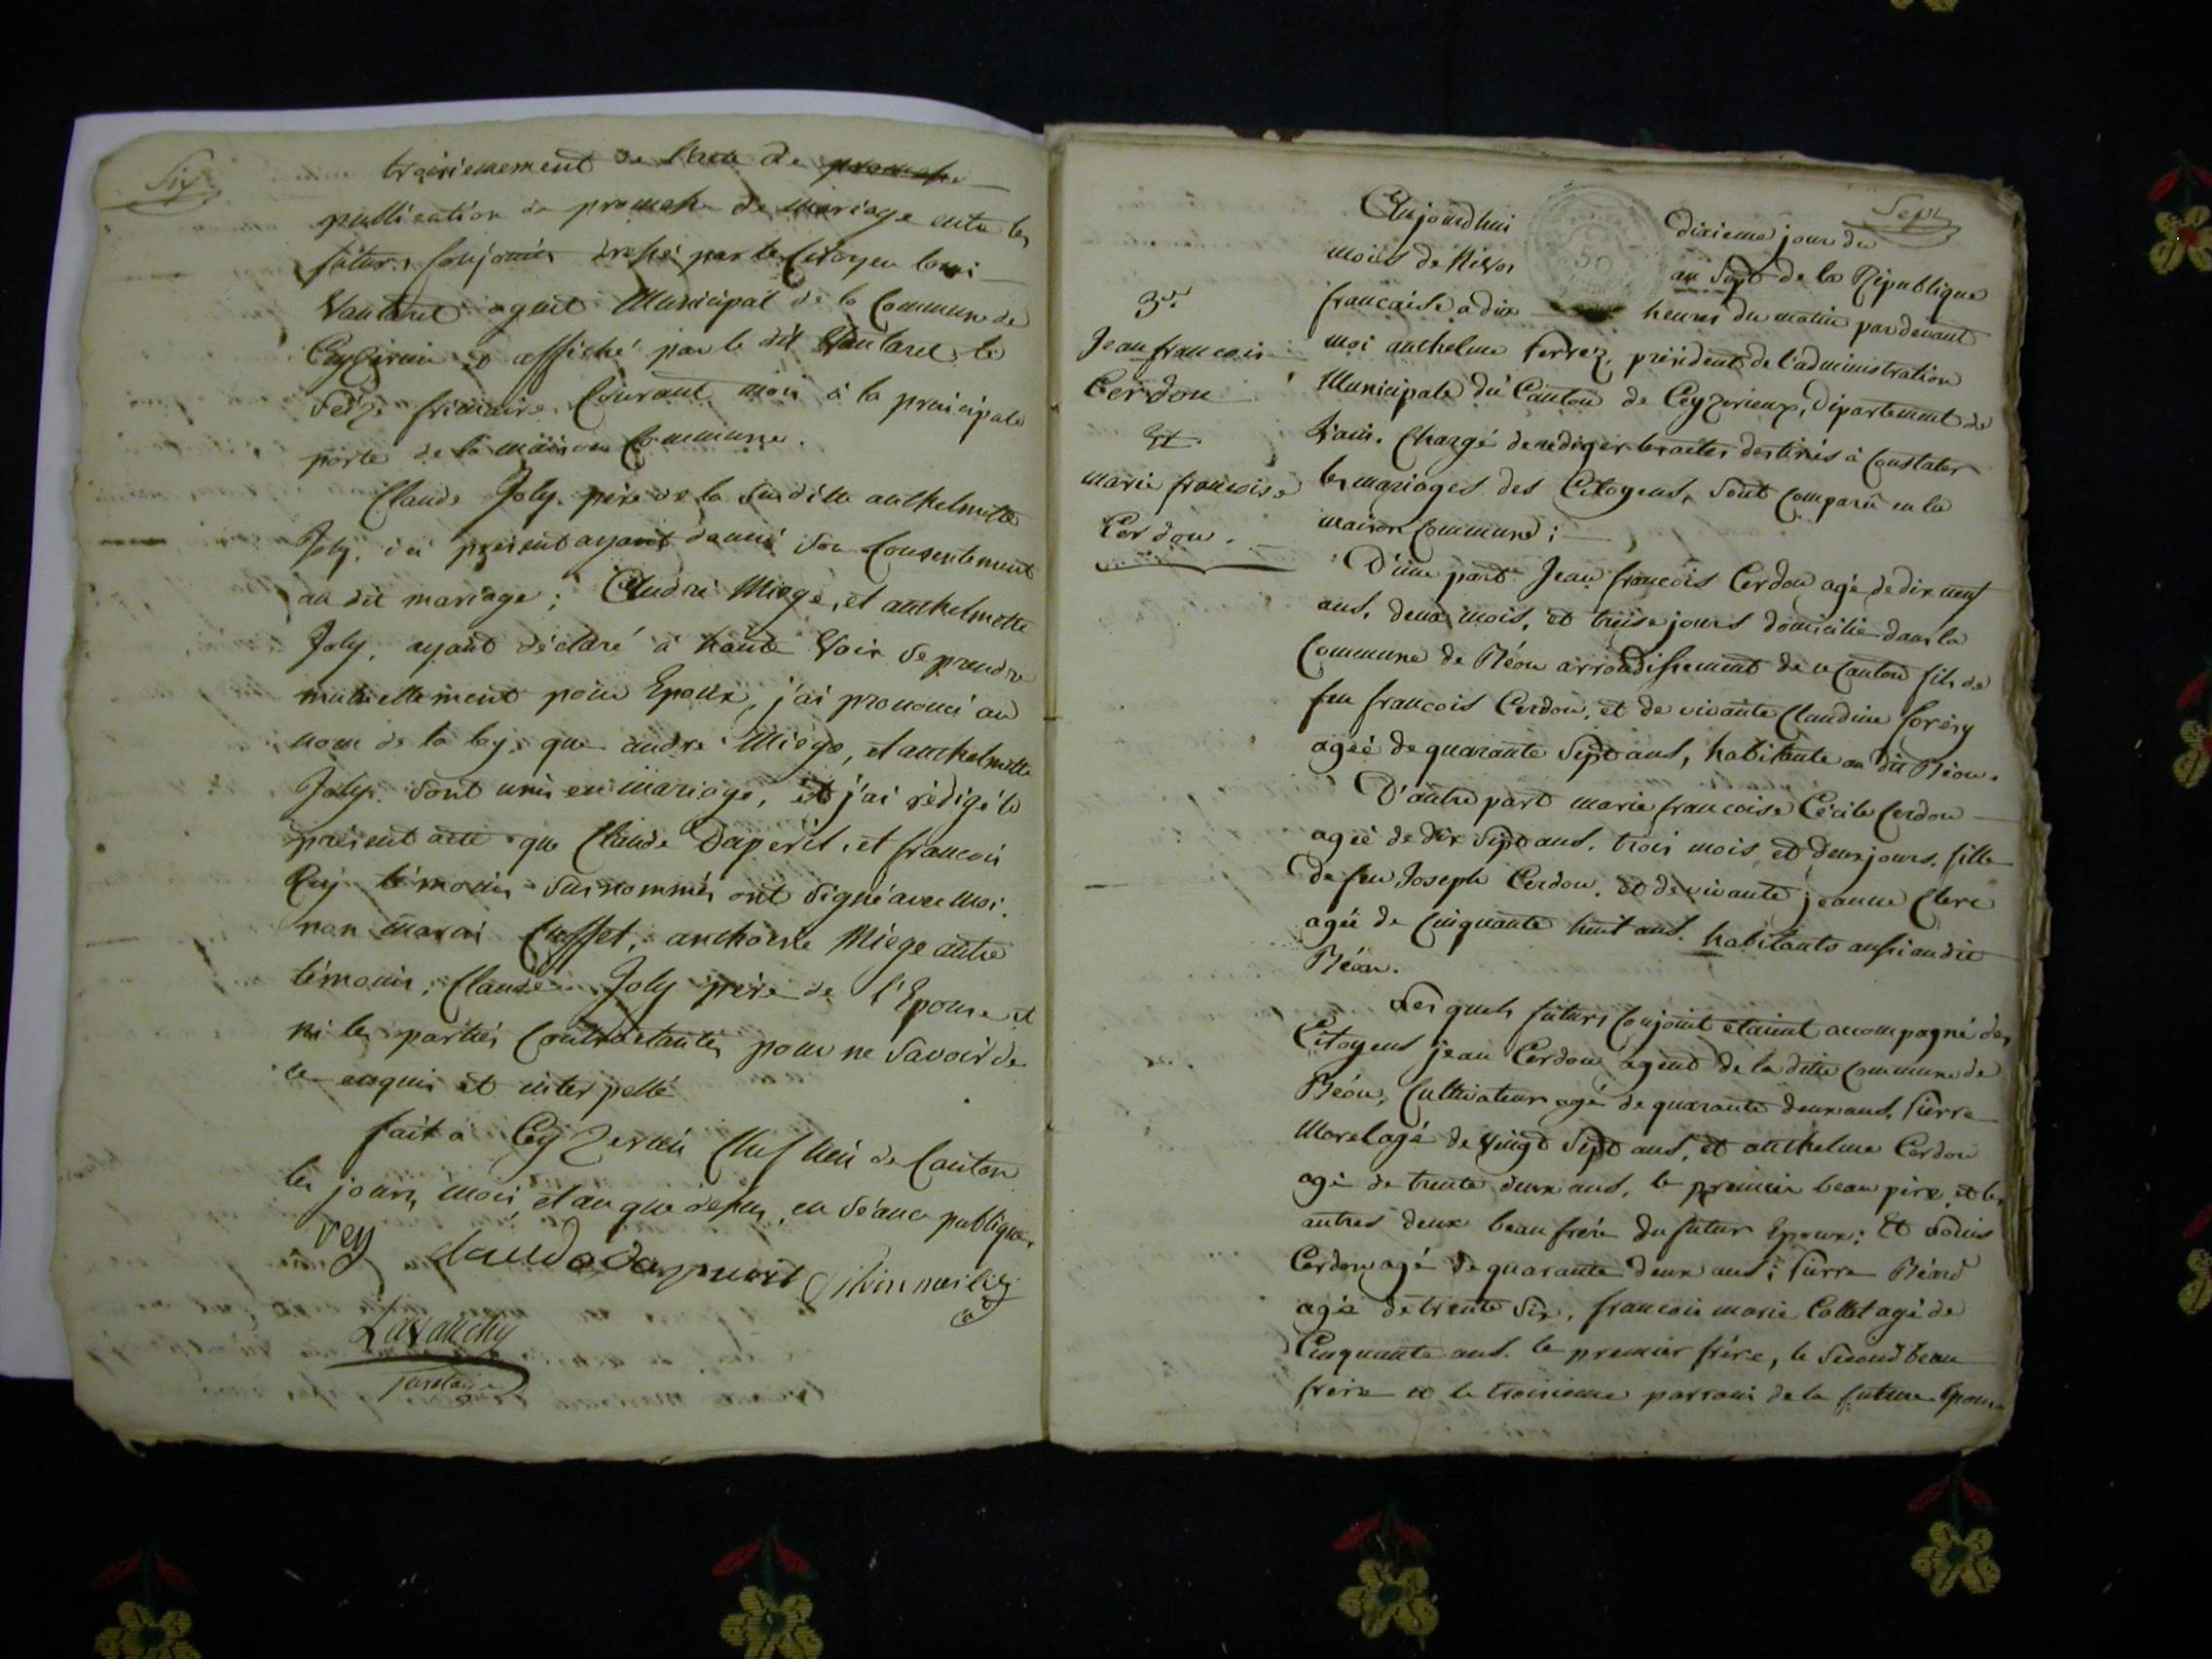 Six
troisiemement de l'acte de promesse
publication de promesse de mariage entre les
futurs Conjoints dressé par le Citoyen loui
Vautaret agent Municipal de la Commune de
Ceyzerieu et affiché par le dit Vautaret le
Seize frimaire Courant mois à la principale
porte de la maison Commune.
Claude Joly père de la Susditte anthelmette
Joly, ici present ayant donné son Consentement
au dit mariage; André Miege, et anthelmette
Joly, ayant déclaré à haute Voix se prendre
mutuellement pour Epoux, j'ai prononcé au
nom de la loy, que andré Miege, et anthelmette
Joly sont unis en mariage, et j'ai rédigé le
présent acte que Claude Daperit, et francois
Rey témoins surnommés ont signé avec moi.
non marai Cuffet, anthoine Miege autre
témoins, Claude Joly père de l'Epouse et
ni les parties Contractantes pour ne savoir de
ce enquis et interpellé
fait à Ceyzerieu Chef lieu de Canton
les jours, mois, et an que dessus, en séance publique,
rey
Lavanchy
Sept
Aujourdhui dixieme jour du
mois de Nivos an Sept de la République
50
francaise a dix heures du matin pardevant
moi anthelme ferrez, président de l'administration
Municipale du Canton de Ceyzerieux, Département de
L'ain. Chargé de rediger les actes destinés à Constater
les mariages des Citoyens, sont comparû en la
maison Commune;
3e.
Jean francois
Cerdon
Et
marie francoise
Cerdon.
D'une part Jean francois Cerdon agé de dix neuf
ans, deux mois, et treise jours domicilié dans la
Commune de Béon arrondissement de ce Canton fils de
feu francois Cerdon, et de vivante Claudine forésy
agée de quarante Sept ans, habitante au dit Béon.
D'autre part marie francoise Cécile Cerdon
agée de dix Sept ans, trois mois, et deux jours, fille
de feu Joseph Cerdon, et de vivante jeanne Clerc
agée de Cinquante huit ans. habitants aussi au dit
Béon.
Les quels futurs Conjoint etaient accompagné des
Citoyens jean Cerdon agent de la ditte commune de
Béon, Cultivateur agé de quarante deux ans, Pierre
Morel agé de Vingt Sept ans, et anthelme Cerdon
agé de trente deux ans, le premier beau pere et les
autres deux beau frere du futur Epoux; Et
Cerdon agé de quarante deux ans; Pierre Béard
agé de trente Six, francois marie Collet agé de
Cinquante ans. le premier frére, le Second beau
frere et le troisieme parrain de la future Epouse